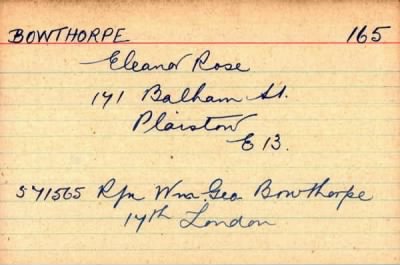 BOWTHORPE 165
Eleanor Rose
171 Balham St.
Plaistow
E 13.
571565 Rfn Wm. Geo Bowthorpe
17th London